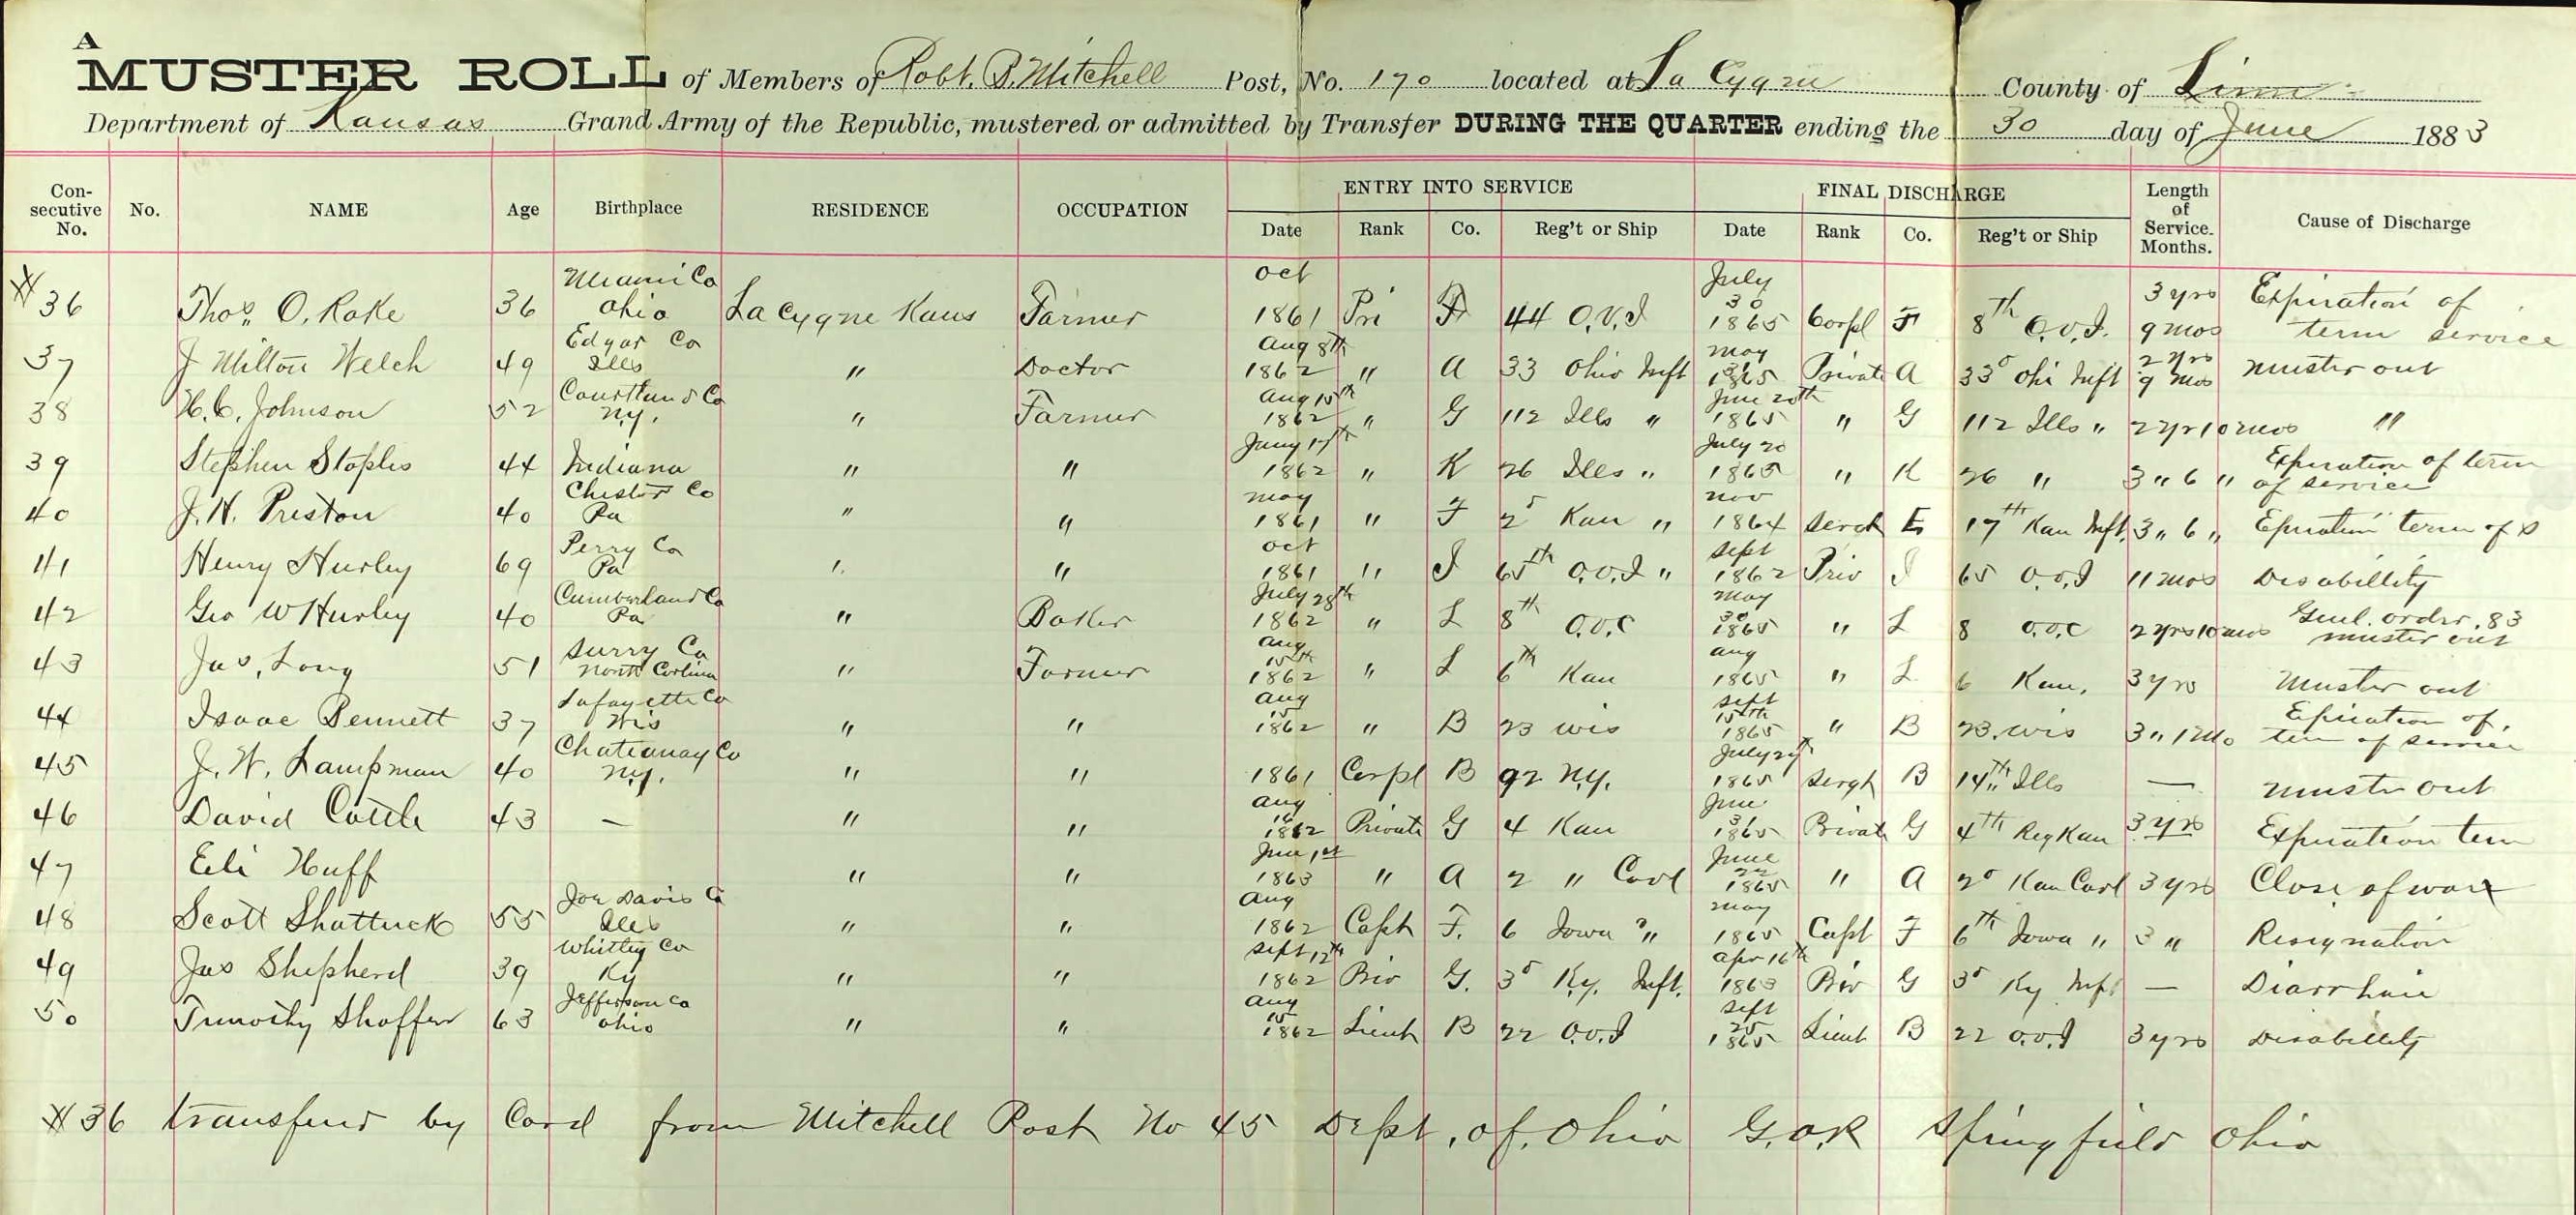 A
MUSTER ROLL of Members of Robt. B. Mitchell Post, No. 170 located at La Cygne County of Linn
Department of Kansas Grand Army of the Republic, mustered or admitted by Transfer DURING THE QUARTER ending the 30 day of June 1883
Con-secutive No. No. NAME Age Birthplace RESIDENCE OCCUPATION ENTRY INTO SERVICE Date Rank Co. Reg't or Ship FINAL DISCHARGE Date Rank Co. Reg't or Ship Length of Service. Months. Cause of Discharge
36 Thos. O. Rake 36 Miami Co Ohio La Cygne Kans Farmer Oct 1861 Pri F 44 O.V.I July 30 1865 Corpl F 8th O.V.I. 3 yrs 9 mos Expiration of term service
37 J Milton Welch 49 Edgar Co Ills " Doctor Aug 8th 1862 " A 33 Ohio Inft May 31 1865 Private A 33d Ohi Inft 2 yrs 9 mos Muster out
38 H.C. Johnson 52 Courtland Co N.Y. " Farmer Aug 15th 1862 " G 112 Ills " June 20th 1865 " G 112 Ills " 2 yr 10 mos "
39 Stephen Staples 44 Indiana " " Jany 17th 1862 " K 26 Ills " July 20 1865 " K 26 " 3 " 6 " Expiration of term of service
40 J.H. Preston 40 Chester Co Pa " " May 1861 " F 2d Kan " Nov 1864 Sergt E 17th Kan Inft. 3 " 6 " Expiration term of S
41 Henry Hurley 69 Perry Co Pa " " Oct 1861 " I 65th O.V.I " Sept 1862 Priv I 65 O.V.I 11 mos Disabillity
42 Geo W Hurley 40 Cumberland Co Pa " Baker July 28th 1862 " L 8th O.V.C May 30 1865 " L 8 O.V.C 2 yrs 10 mos Genl. order. 83 muster out
43 Jas. Long 51 Surry Co North Carlina " Farmer Aug 15th 1862 " L 6th Kan Aug 1865 " L 6 Kan. 3 yrs Muster out
44 Isaac Bennett 37 Lafayette Co Wis " " Aug 15 1862 " B 23 Wis Sept 15th 1865 " B 23. Wis 3 " 1 Mo Expiration of. term of service
45 J. W. Lampman 40 Chatauqay Co N.Y. " " 1861 Corpl B 92 N.Y. July 29th 1865 Sergt B 14th Ills — Muster out
46 David Cottle 43 — " " Aug 16 1862 Private G 4 Kan June 31 1865 Private G 4th Reg Kan 3 yrs Expiration term
47 Eli Huff " " June 1st 1863 " A 2 " Cavl June 22 1865 " A 2d Kan Cavl 3 yrs Close of war
48 Scott Shattuck 55 Joe Davis Co Ills " " Aug 1862 Capt F. 6 Iowa " May 1865 Capt F 6th Iowa " 3 " Resignation
49 Jas Shepherd 39 Whitley Co Ky " " Sept 12th 1862 Priv G. 3d Ky. Inft. Apr 16th 1863 Priv G 3d Ky Inft — Diarrhaie
50 Timothy Shaffer 63 Jefferson Co Ohio " " Aug 15 1862 Lieut B 22 O.V.I Sept 25 1865 Lieut B 22 O.V.I 3 yrs Disabillity
36 transferd by Card from Mitchell Post No 45 Dept. of. Ohio G.A.R Springfield Ohio